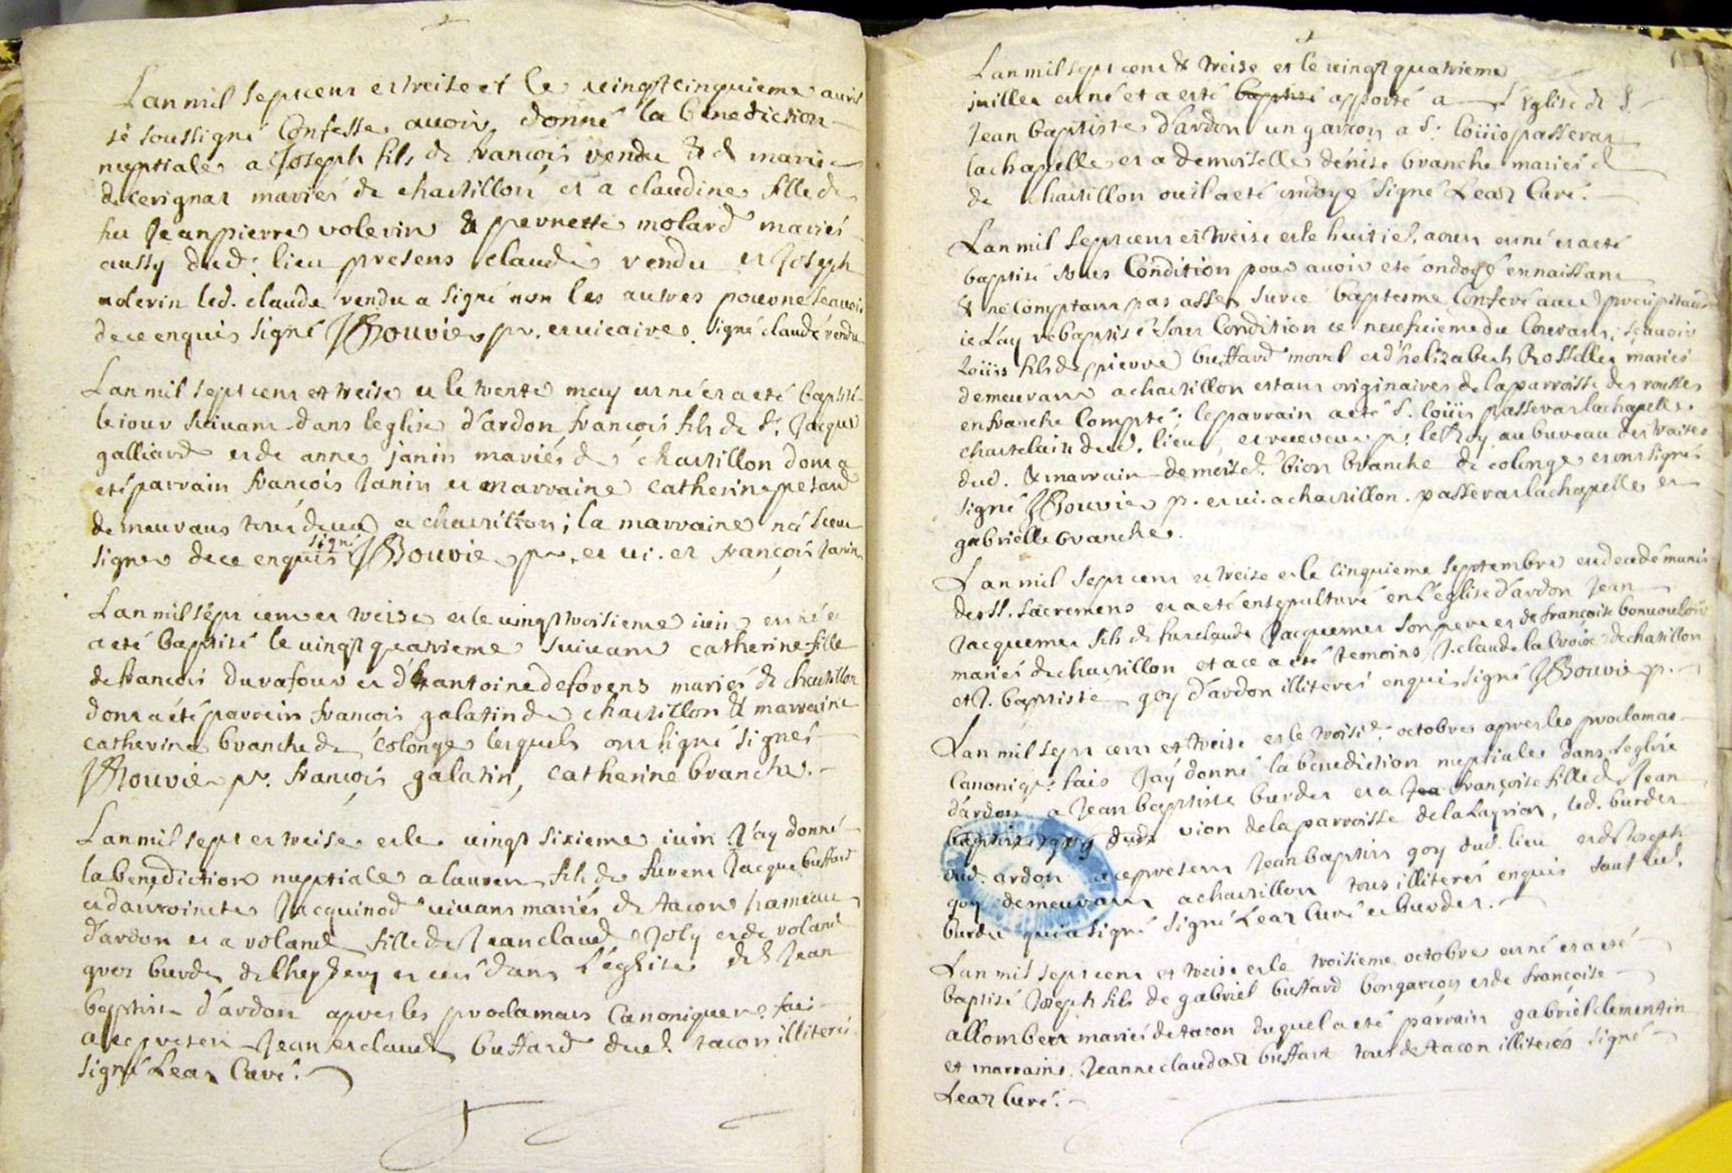 Lan mil sept cens et treize et le vingt cinquieme avril
je soussigné Confesse avoir donné la benediction
nuptiale a Joseph fils de francois vendu & de marie
de cerignat mariés de chastillon et a claudine fille de
feu Jean pierre volerin & pernette molard mariés
aussy dud. lieu presens claude vendu et Joseph
volerin led. claude vendu a signé non les autres pour ne scavoir
de ce enquis signé JBouvier pr. et vicaire. signé claude vendu
Lan mil sept cens et treize et le trente may est né et a eté baptisé
le jour suivant dans leglise d'ardon francois fils de Sr. Jacque
galliard et de anne janin mariés de chastillon dont a
eté parrain francois Janin et marraine catherine
demeurans tous deux a chastillon; la marraine
signer de ce enquis signé JBouvier pr. et vi. et francois Janin
Lan mil sept cens et treize et le vingt troisieme juin est né et
a eté baptisé le vingt quatrieme suivant catherine fille
de francois durafour et d'antoine deforens mariés de chastillon
dont a été parrain francois galatin de chastillon & marraine
catherine branche de colonge lesquels ont signé signés
JBouvier pr. francois galatin, catherine branche.
Lan mil sept et treize et le vingt sixieme juin J'ay donné
la benediction nuptiale a laurent fils de Jacque buffard
et d'antoinette Jacquinod vivans mariés de tacon hameau
d'ardon et a roland fille de Jean claude Joly et de roland
burdet de et ce dans l'église de St. Jean
baptiste d'ardon apres les proclamats Canoniquem. fais
a ce presens Jean et claude buffard dud. tacon illiterés
signé Leaz Curé.
Lan mil sept cens & treize et le vingt quatrieme
juillet est né et a esté baptisé apporté a l'Eglise de S.
Jean baptiste d'ardon un garcon a Sr. loüis passerat
lachapelle et a demoiselle denise branche mariés d
de chastillon ou il a eté ondoyé signé Leaz Curé.
Lan mil sept cens et treize et le huitie. aoust est né et a eté
baptisé sous Condition pour avoir eté ondoyé en naissant
& ne comptant pas asses sur ce baptesme Conferé avec precipitation
je l'ay rebaptisé sous Condition ce neufvieme du Courant, scavoir
Loüis fils de pierre buffard morel et d'helizabeth Rosselet mariés
demeurans a chastillon estans originaires de la parroisse des rousses
en franche Compté; le parrain a eté Sr. loüis passerat lachapelle
chastelain dud. lieu, et receveur pr. le Roy au bureau des traites
dud. & marraine demoisel. branche de colonge et ont signés
signé JBouvier p. et vi. a chastillon. passerat lachapelle et
gabrielle branche.
Lan mil sept cens et treize et le cinquieme septembre est decedé munis
des SS. sacremens et a eté ensepulturé en l'eglise d'ardon Jean
Jacquemet fils de feu claude Jacquemet son pere et de francoise bonvouloir
mariés de chastillon et a ce a eté temoins J. claude la Croix de chatillon
et J. baptiste goy d'ardon illiterés enquis signé JBouvier p.
Lan mil sept cens et treize et le troisie. octobre apres les proclamas
canoniq. fais J'ay donné la benediction nuptiale dans leglise
d'ardon a Jean baptiste burdet et a Jea francoise fille de Jean
baptiste goy dud. vion de la parroisse de la Layriat, led. burdet
dud. ardon a ce presens Jean baptiste goy dud. lieu et de Joseph
goy demeurant a chastillon tous illiterés enquis sauf led.
burdet qui a signé signé Leaz Curé et burdet.
Lan mil sept cens et treize et le troisieme octobre est né et a eté
baptisé Joseph fils de gabriel buffard bongarcon et de francoise
allombert mariés de tacon duquel a eté parrain gabriel clementin
et marraine Jeanne claudat buffard tous de tacon illiterés signé
Leaz Curé.